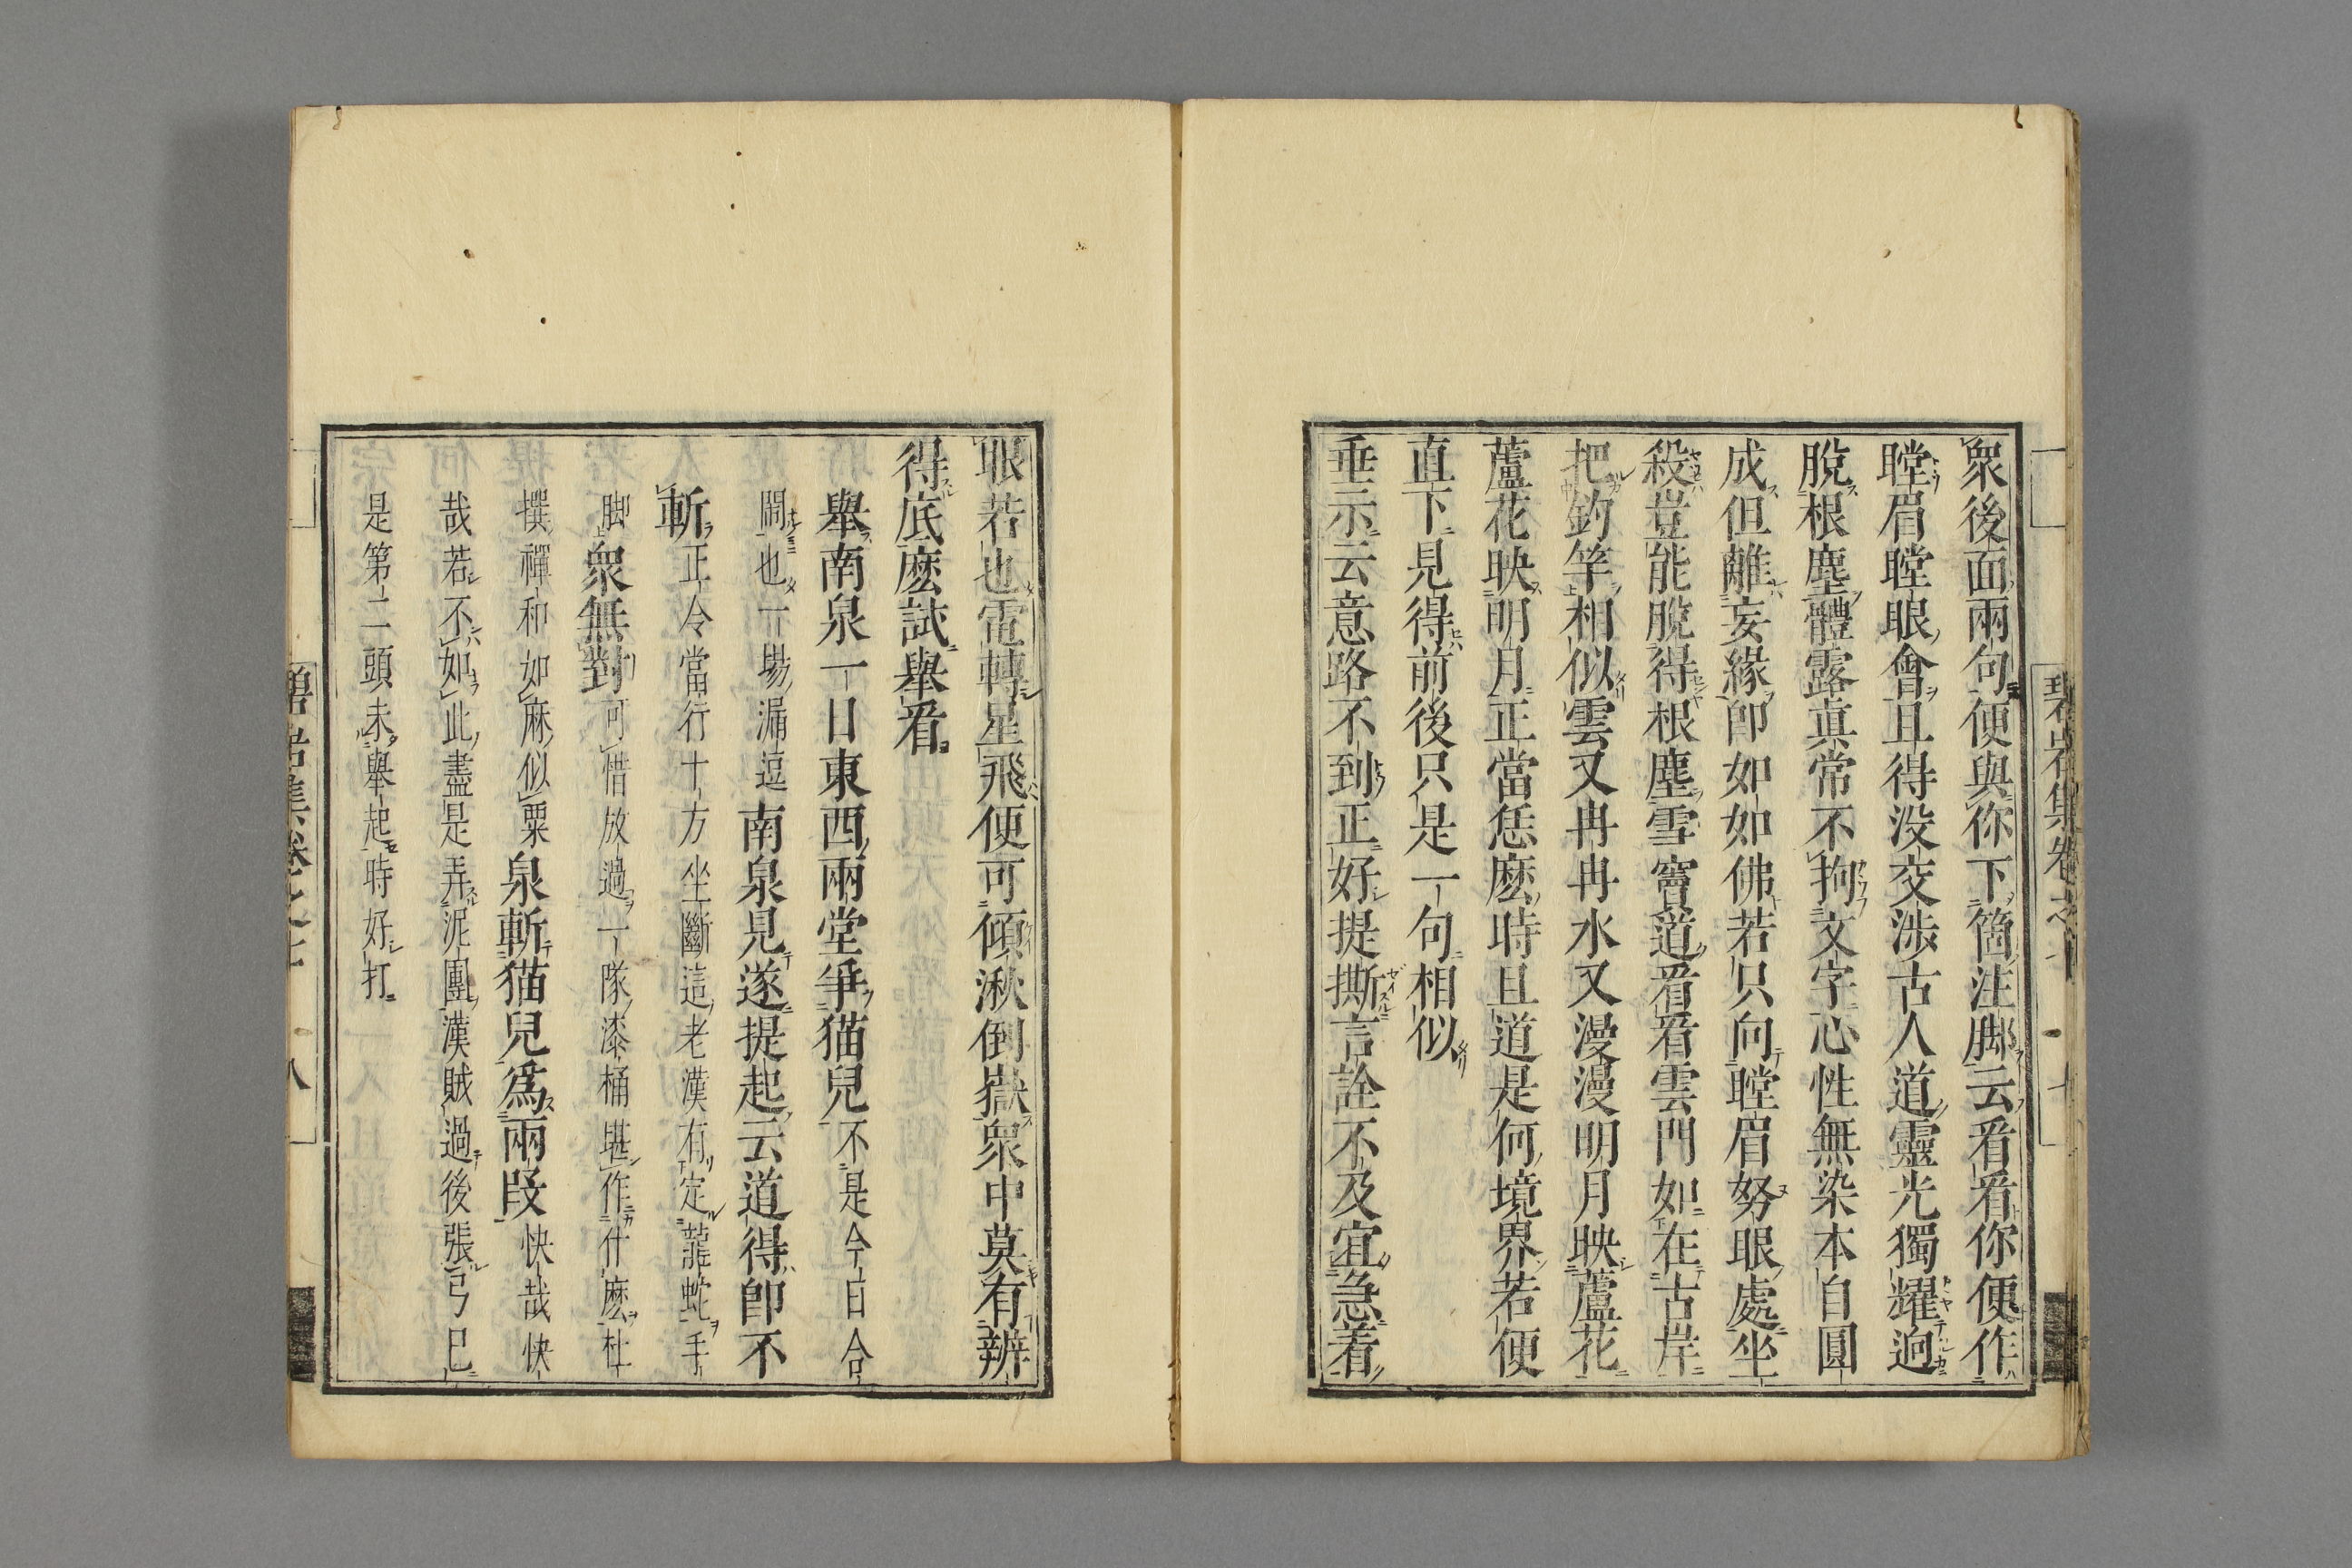 衆後面兩句便與你下箇注脚云看看你便作
瞠眉瞠眼會且得没交渉古人道靈光獨耀逈
脫根塵體露眞常不拘文字心性無染本自圓
成但離妄緣卽如如佛若只向瞠眉努眼處坐
殺豈能脫得根塵雪竇道看看雲門如在古岸
把釣竿相似雲又冉冉水又漫漫明月映蘆花
蘆花映明月正當恁麽時且道是何境界若便
直下見得前後只是一句相似
垂示云意路不到正好提撕言詮不及宜急着
眼若也電轉星飛便可傾湫倒嶽衆中莫有辨
得底麽試舉看
舉南泉一日東西兩堂爭猫兒不是今日合
閙也一場漏逗南泉見遂提起云道得卽不
斬正令當行十方坐斷這老漢有定龍蛇手
脚衆無對可惜放過一隊漆桶堪作什麽杜
撰禪和如麻似粟泉斬猫兒爲兩段快哉快
哉若不如此盡是弄泥團漢賊過後張弓已
是第二頭未舉起時好打